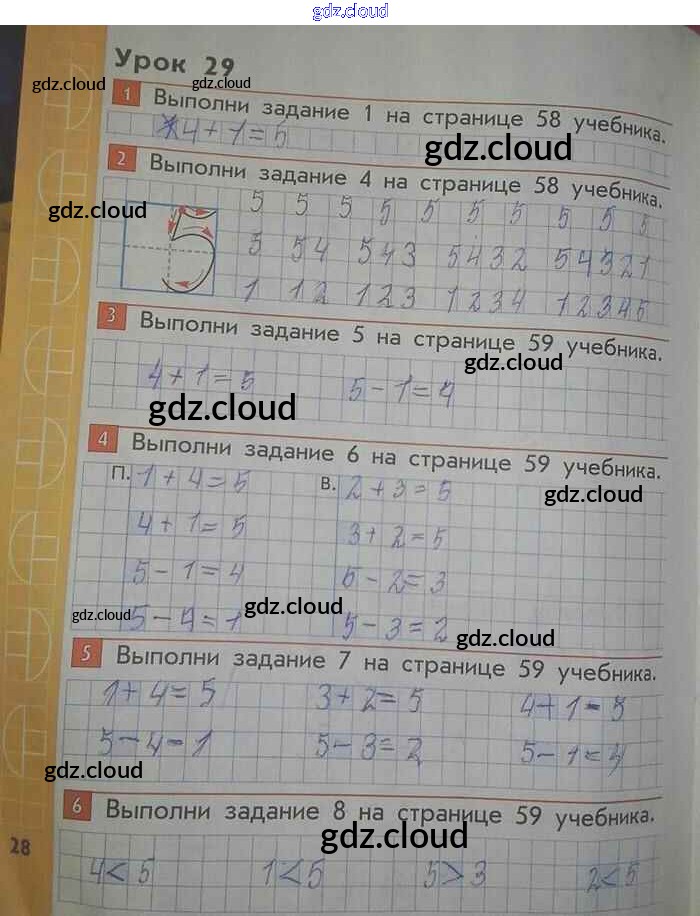 gdz.cloud
Урок 29
gdz.cloud gdz.cloud
1 Выполни задание 1 на странице 58 учебника.
4 + 1 = 5
gdz.cloud
2 Выполни задание 4 на странице 58 учебника.
gdz.cloud
5 5 5 5 5 5 5 5 5 5
5 54 543 5432 54321
1 12 123 1234 12345
3 Выполни задание 5 на странице 59 учебника.
gdz.cloud
4 + 1 = 5 5 - 1 = 4
gdz.cloud
4 Выполни задание 6 на странице 59 учебника.
П. 1 + 4 = 5 В. 2 + 3 = 5
gdz.cloud
4 + 1 = 5 3 + 2 = 5
5 - 1 = 4 5 - 2 = 3
gdz.cloud gdz.cloud
5 - 4 = 1 5 - 3 = 2
gdz.cloud
5 Выполни задание 7 на странице 59 учебника.
1 + 4 = 5 3 + 2 = 5 4 + 1 = 5
5 - 4 = 1 5 - 3 = 2 5 - 1 = 4
gdz.cloud
6 Выполни задание 8 на странице 59 учебника.
gdz.cloud
28
4 < 5 1 < 5 5 > 3 2 < 5